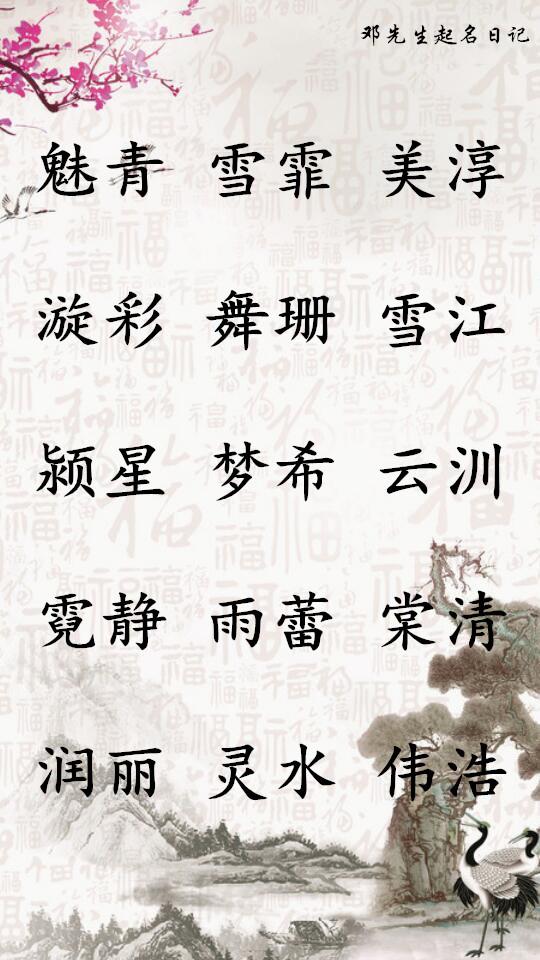 邓先生起名日记
魅青 雪霏 美淳
漩彩 舞珊 雪江
颍星 梦希 云汌
霓静 雨蕾 棠清
润丽 灵水 伟浩